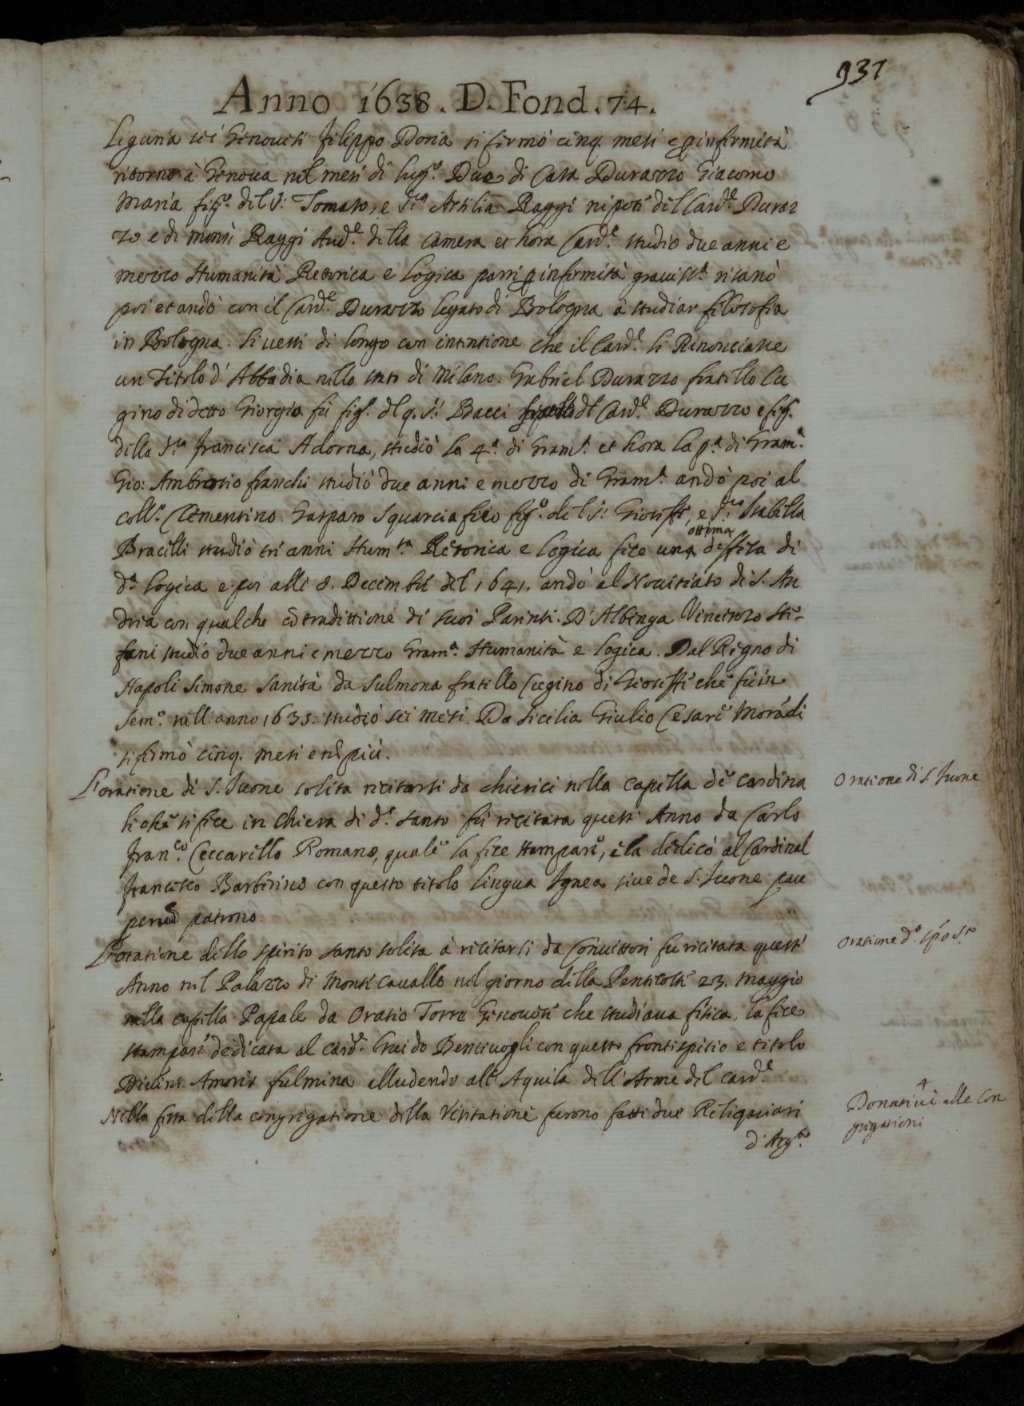 937
Anno 1638. D. Fond. 74.
Liguria sei Genovesi Filippo Doria si fermò cinq. mesi e p infirmità
ritornò à Genova nel mesi di lugº. Due di Casa Durazzo Giacomo
Maria figº. del Sr. Tomaso, e Sra. Artilia Raggi nipoti del Cardl. Duraz
zo e di monsr. Raggi Audre. della Camera et hora Cardle. studiò due anni e
mezzo Humanità Retorica e Logica partì p infirmità gravissa. risanò
poi et andò con il Cardl. Durazzo legato di Bologna à studiar filosofia
in Bologna. Si vestì di longo con intentione che il Cardl. li Rinonciasse
un Titolo d'Abbadia nello stato di Milano. Gabriel Durazzo fratello Cu
gino di detto Giorgio fù figº. del q. Sr. Bacci del Cardl. Durazzo e figº.
della Sra. Francisca Adorna, studiò la 4a. di Grama. et hora la pa. di Grama.
Gio: Ambrosio franchi studiò due anni e mezzo di Grama. andò poi al
collº. Clementino. Gasparo Squarciafico figº. del Sr. Gioseffe, e Sra. Isabella
Bracelli studiò tri anni Humtà. Retorica e Logica fece una ottima deffesa di
da. Logica e poi alli 8. Decembre del 1641. andò al Novitiato di S. An
drea con qualche cōtradittione di suoi Parenti. D'Albenga Vincenzo Ste-
fani studiò due anni e mezzo Grama. Humanità e Logica. Dal Regno di
Napoli Simone Sanità da Sulmona fratello Cugino di Gioseffe che fù in
Semº. nell anno 1635. studiò sei mesi. Da Sicilia Giulio Cesare Moradi
si fermò cinq. mesi e nō più.
L'oratione di S. Ivone solita recitarsi da chierici nella capella de Cardina
li che si fece in Chiesa di do. Santo fù recitata questo Anno da Carlo
Franco. Ceccarello Romano, quale la fece stampare, e la dedicò al Cardinal
Francesco Barberino con questo titolo Lingua Ignea sive de S. Ivone pau
perum patrono.
Oratione di S. Ivone
L'oratione dello Spirito Santo solita à recitarsi da Convittori fu recitata questo
Anno nel Palazzo di Monte Cavallo nel giorno della Pentecoste 23. Maggio
nella capella Papale da Oratio Torre Genovese che studiava fisica, la fece
stampare dedicata al Cardl. Guido Bentivogli con questo frontispitio e titolo
Divini Amoris fulmina alludendo all' Aquila dell' Arme del Cardl.
Oratione do. Spº. Sto.
Nella festa della congregatione della Visitatione furono fatti due Reliquiari
d'Argto.
Donativi alle Con
gregationi